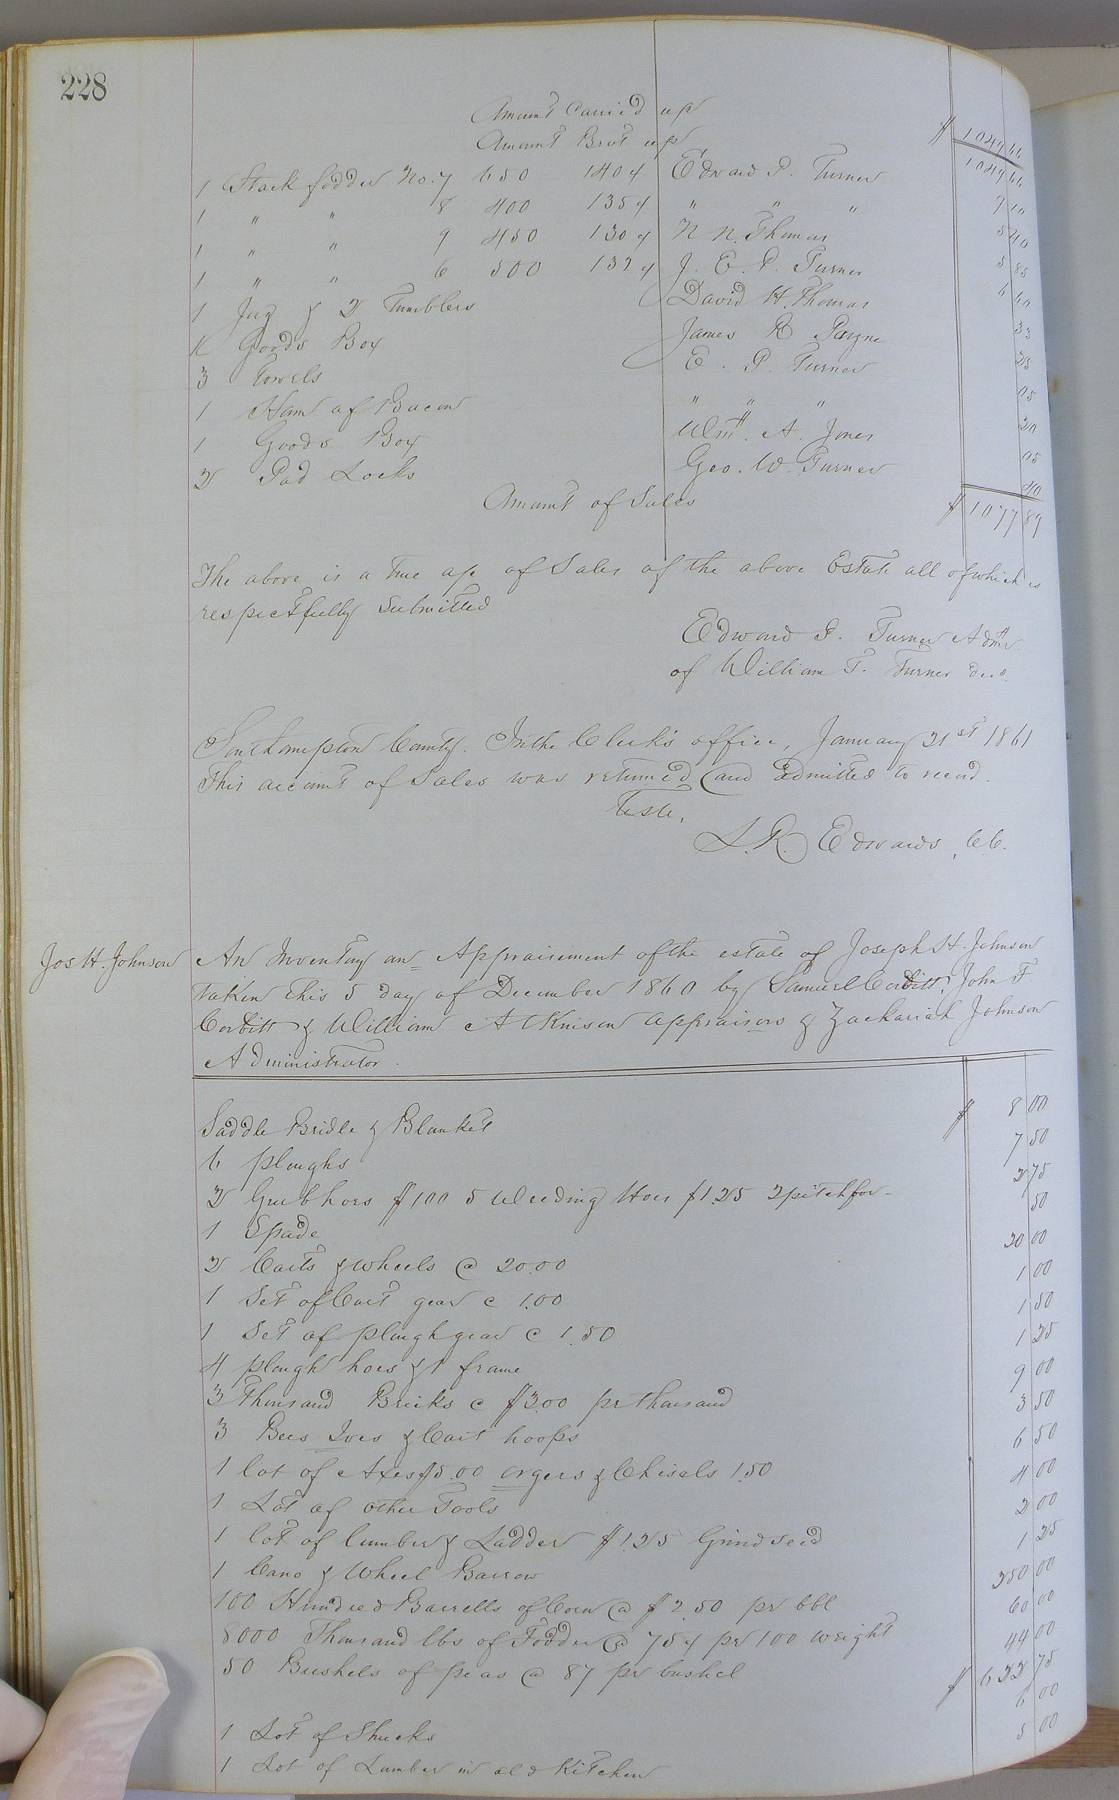 228
Amount Carried up $ 1049 66
Amount Brot up 1049 66
1 Stack fodder No. 7 650 140 ¢ Edward P. Turner 9 10
1 " " 8 400 135 ¢ " " " 5 40
1 " " 9 450 130 ¢ N N. Thomas 5 85
1 " " 6 500 132 ¢ J. E. P. Turner 6 60
1 Jug & 2 Tumblers David H. Thomas 33
1 Goods Box James R Payne 25
3 Towels E. P. Turner 05
1 Ham of Bacon " " " 20
1 Goods Box Wm. A. Jones 05
2 Pad Locks Geo. W. Turner 40
Amount of Sales $ 1077 89
The above is a true a/c of Sales of the above Estate all of which is
respectfully Submitted
Edward P. Turner Admr
of William T. Turner decd.
Southampton County. In the Clerk's office, January 21st 1861
This account of Sales was returned and admitted to record.
Teste,
L. R. Edwards, CC.
Jos H. Johnson
An Inventory an Appraisement of the estate of Joseph H. Johnson
taken this 5 day of December 1860 by Samuel Corbitt, John F
Corbitt & William Atkinson appraisors & Zachariah Johnson
Administrator.
Saddle Bridle & Blanket $ 8 00
6 ploughs 7 50
2 Grubhoes $1 00 5 Weeding Hoes $1.25 2 pitchfor- 2 75
1 Spade 50
2 Carts & wheels @ 20.00 20 00
1 Set of Cart gear @ 1.00 1 00
1 Set of plough gear @ 1.50 1 50
4 plough hoes & 1 frame 1 25
3 Thousand Bricks @ $3.00 pr thousand 9 00
3 Bees Ives & Cart hoops 3 50
1 lot of Axes $5.00 orgers & Chisels 1.50 6 50
1 Lot of other Tools 4 00
1 lot of lumber & Ladder $1.25 Grind seed 2 00
1 Cano & Wheel Barrow 1 25
100 Hundred Barrells of Corn @ $2.50 pr bbl 250 00
8000 Thousand lbs of Fodder @ 75 ¢ pr 100 weight 60 00
50 Bushels of peas @ 87 pr bushel 44 00
$ 622 75
1 Lot of Shucks 6 00
1 Lot of Lumber in old Kitchen 5 00